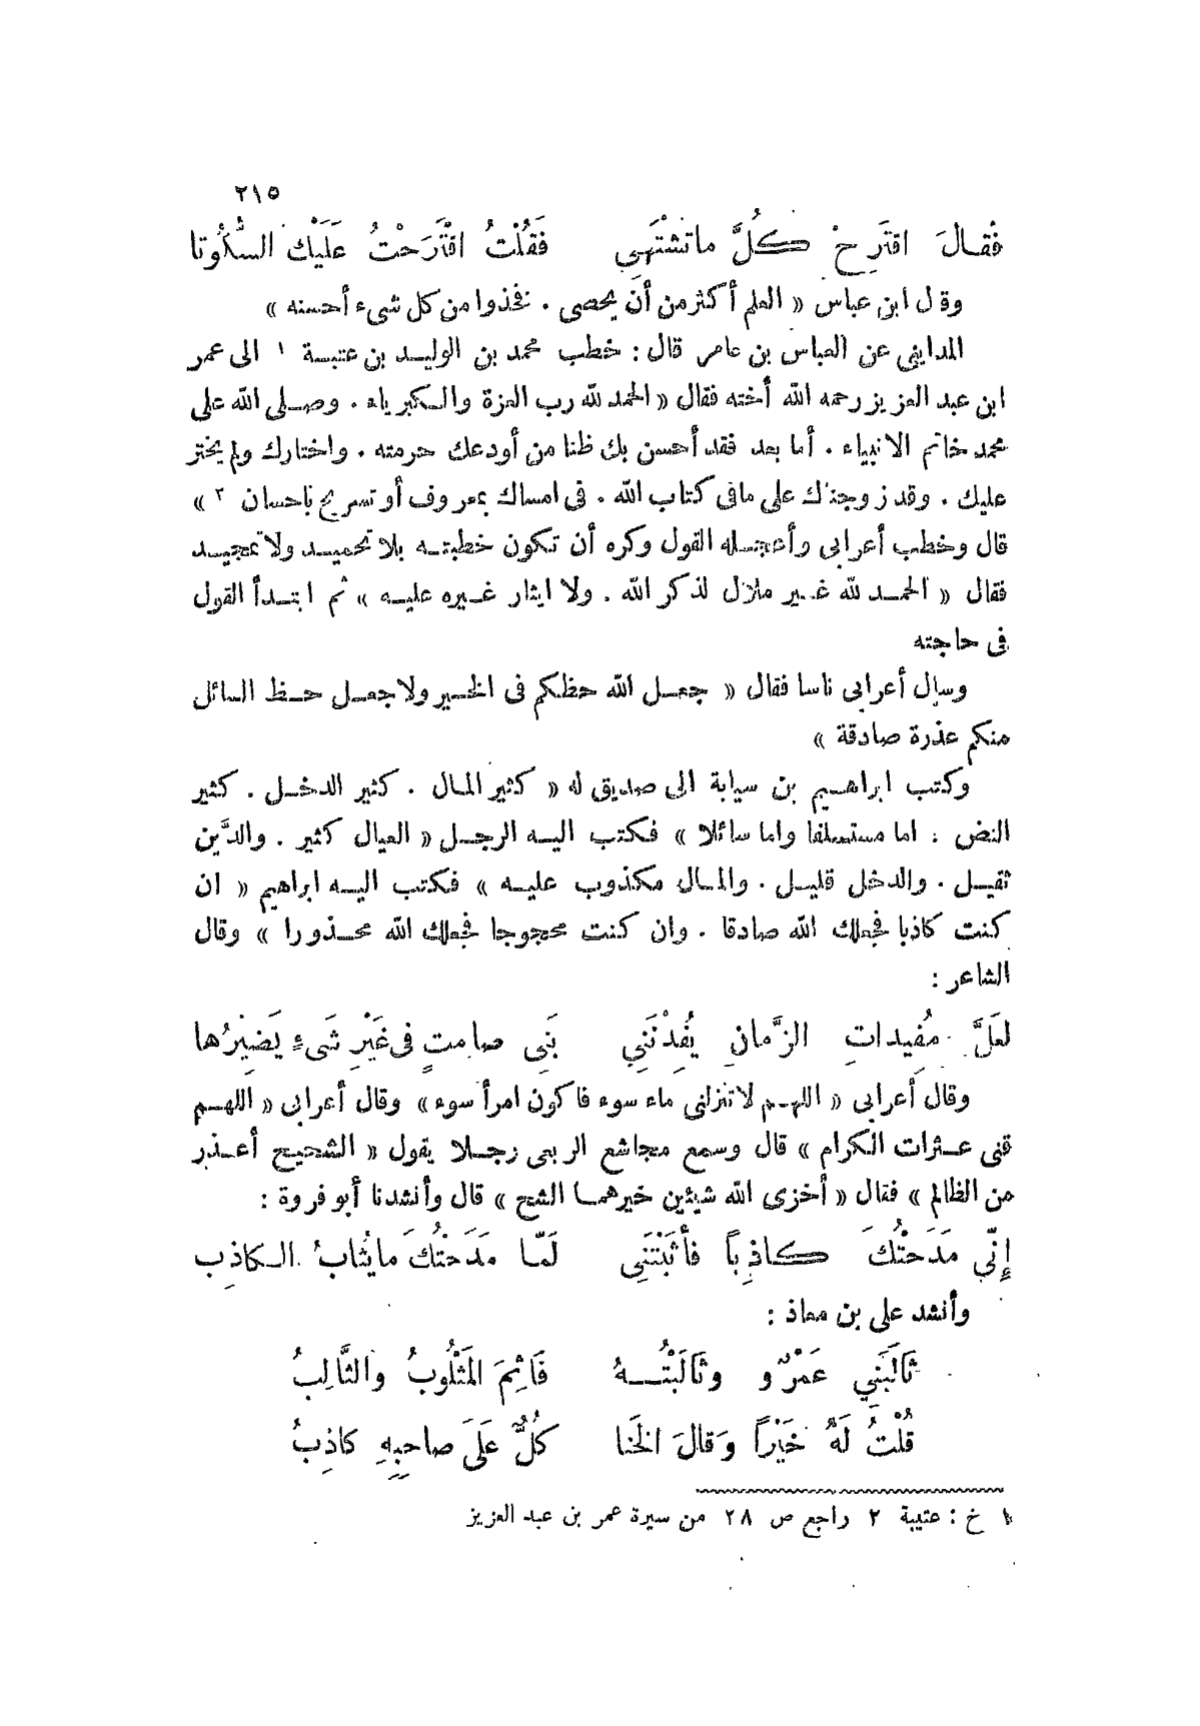 ٢١٥
فَقَالَ اقتَرِحْ كُلَّ ماتشْتَهِي فَقُلْتُ اقْتَرَحْتُ عَلَيْكَ السُّكُوتا
وقال ابن عباس « العلم أكثر من أن يحصى . فخذوا من كل شيء أحسنه »
المدايني عن العباس بن عامر قال : خطب محمد بن الوليد بن عتبة ١ الى عمر
ابن عبد العزيز رحمه الله أخته فقال « الحمد لله رب العزة والكبرياء . وصلى الله على
محمد خاتم الانبياء . أما بعد فقد أحسن بك ظنا من أودعك حرمته . واختارك ولم يختر
عليك . وقد زوجناك على مافى كتاب الله . فى امساك بمعروف أو تسريح باحسان ٢ »
قال وخطب أعرابى وأعجله القول وكره أن تكون خطبته بلا تحميد ولا تمجيد
فقال « الحمد لله غير ملال لذكر الله . ولا ايثار غيره عليه » ثم ابتدأ القول
فى حاجته
وسأل أعرابى ناسا فقال « جعل الله حظكم فى الخير ولا جعل حظ السائل
منكم عذرة صادقة »
وكتب ابراهيم بن سيابة الى صديق له « كثير المال . كثير الدخل . كثير
النض : اما مستسلفا واما سائلا » فكتب اليه الرجل « العيال كثير . والدَّين
ثقيل . والدخل قليل . والمال مكذوب عليه » فكتب اليه ابراهيم « ان
كنت كاذبا فجعلك الله صادقا . وان كنت محجوجا فجعلك الله محذورا » وقال
الشاعر :
لعَلَّ مُفِيداتِ الزَّمانِ يُفِدْنَنِي بَنِى صامتٍ فى غَيْرِ شَىءٍ يَضِيرُها
وقال أعرابي « اللهم لا تنزلنى ماء سوء فاكون امرأ سوء » وقال أعرابى « اللهم
قنى عثرات الكرام » قال وسمع مجاشع الربعى رجلا يقول « الشحيح أعذر
من الظالم » فقال « أخزى الله شيئين خيرهما الشح » قال وأنشدنا أبو فروة :
إِنِّي مَدَحْتُكَ كاذِباً فأثَبْتَنِى لَمّا مَدَحْتُكَ مايُثابُ الكاذِب
وأنشد على بن معاذ :
ثالَبَنِي عَمْرٌو وثالَبْتُهُ فَأثِمَ المَثْلُوبُ والثَّالِبُ
قُلْتُ لَهُ خَيْراً وَقالَ الخَنا كُلٌّ عَلَى صاحِبِهِ كاذِبُ
١ خ : عتيبة ٢ راجع ص ٢٨ من سيرة عمر بن عبد العزيز